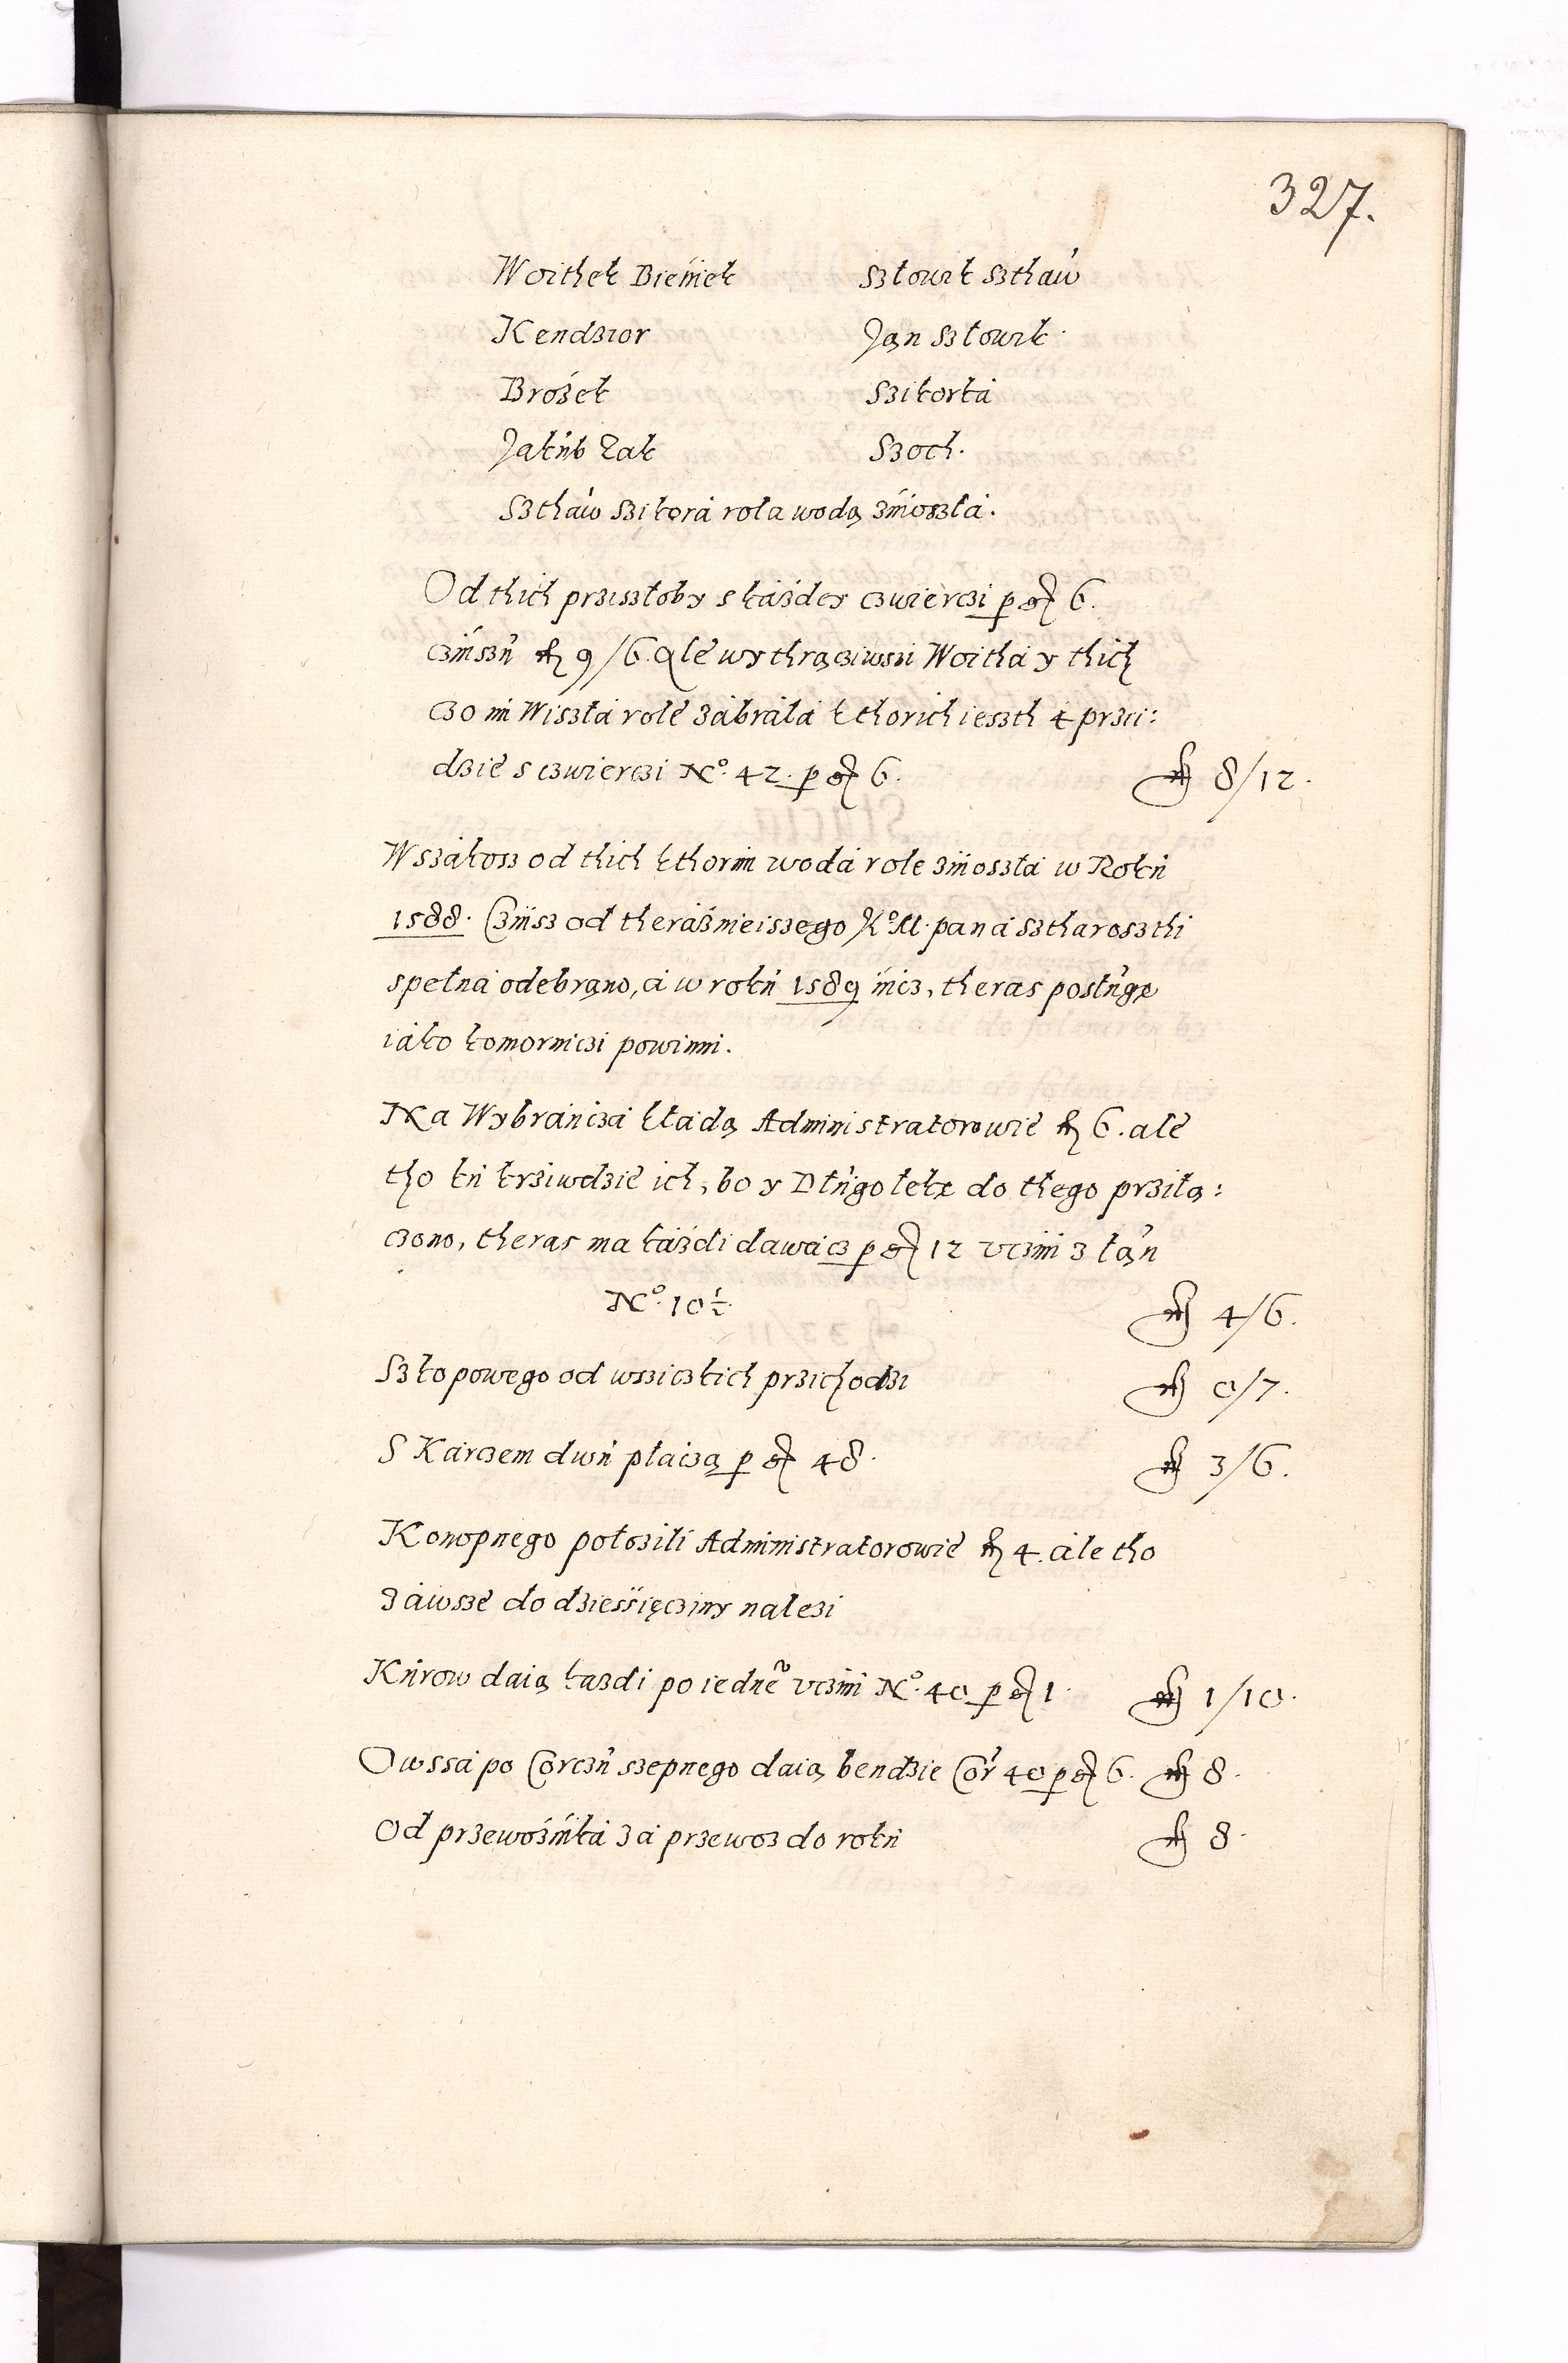 327.
Woithek Bieniek Szkowik Szthaw
Kendzior Jan Szkowik.
Brozek Szikorka
Jakub Zak Szoch.
Szthaw Szikora rola wodą zniosła.
Od thich prziszłoby s każdey czwierczi per gr 6.
czinszu fl 9/6. Ale wythrącziwszi Woitha y thich
czo im Wiszła rolé zábráła kthorich ieszth 4 przi:
dzie s czwierczi No. 42. per gr 6. fl 8/12.
Wszákosz od thich kthorim woda role znioszła w Roku
1588. Czinsz od theráznieiszego Ko M. pana Sztharoszthi
spełna odebrano, á w roku 1589 nicz, theras posługę
iáko komorniczi powinni.
Na Wybráńcza kładą Administratorowie fl 6. ale
tho ku krziwdzie ich, bo y Długołękę do thego przilą:
czono, theras ma każdi dawacz per gr 12 uczini z łan
No. 10½. fl 4/6.
Szkopowego od wsziczkich przichodzi fl 0/7.
S Karczem dwu płaczą per gr 48. fl 3/6.
Konopnego położili Administratorowie fl 4. ále tho
záwsze do dziesięcziny należi
Kurow daią każdi po iednem uczini No. 40 per gr 1. fl 1/10.
Owssa po Corczu szepnego daią bendzie Cor 40 per gr 6. fl 8.
Od przewoźnika zá przewoz do roku fl 8.